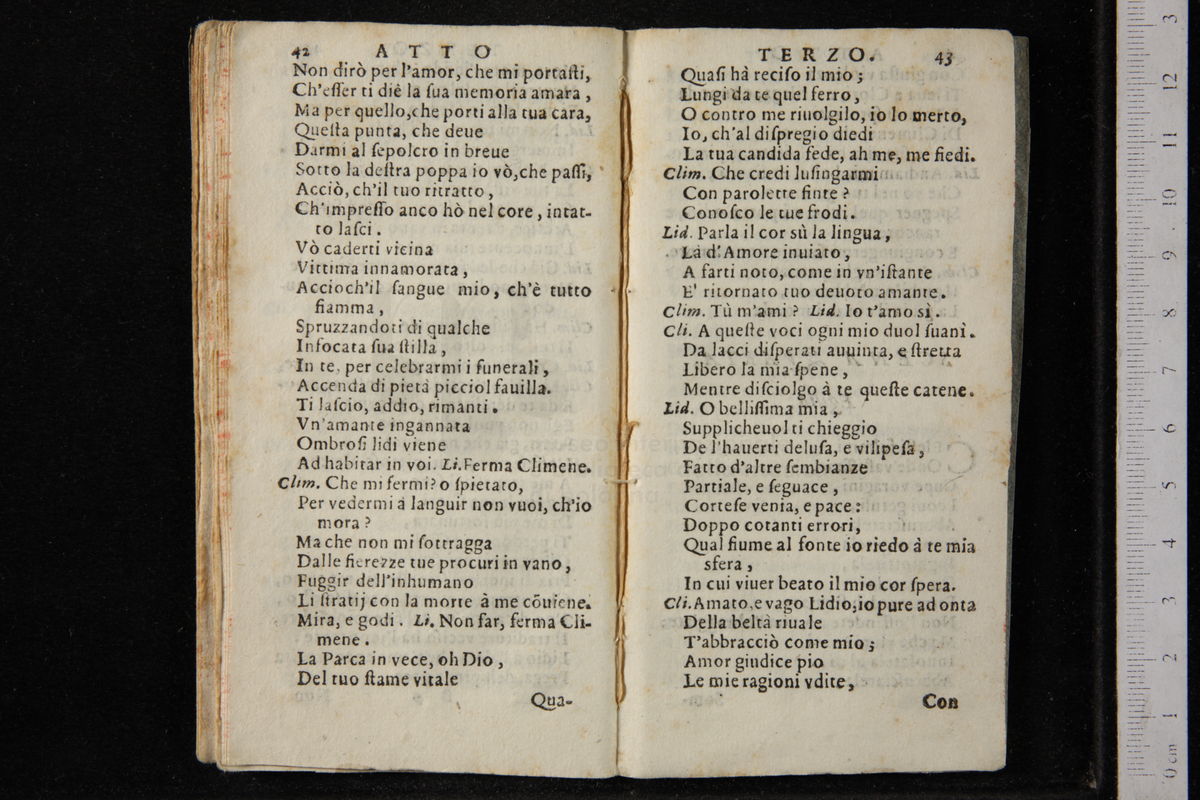 42 ATTO
Non dirò per l'amor, che mi portaſti,
Ch'eſſer ti diè la ſua memoria amara,
Ma per quello, che porti alla tua cara,
Queſta punta, che deue
Darmi al ſepolcro in breue
Sotto la deſtra poppa io vò, che paſſi,
Acciò, ch'il tuo ritratto,
Ch'impreſſo anco hò nel core, intat-
to laſci.
Vò caderti vicina
Vittima innamorata,
Accioch'il ſangue mio, ch'è tutto
fiamma,
Spruzzandoti di qualche
Infocata ſua ſtilla,
In te, per celebrarmi i funerali,
Accenda di pietà picciol fauilla.
Ti laſcio, addio, rimanti.
Vn'amante ingannata
Ombroſi lidi viene
Ad habitar in voi. Li. Ferma Climene.
Clim. Che mi fermi? o ſpietato,
Per vedermi à languir non vuoi, ch'io
mora?
Ma che non mi ſottragga
Dalle fierezze tue procuri in vano,
Fuggir dell'inhumano
Li ſtratij con la morte à me cōuiene.
Mira, e godi. Li. Non far, ferma Cli-
mene.
La Parca in vece, oh Dio,
Del tuo ſtame vitale
Qua-
TERZO. 43
Quaſi hà reciſo il mio;
Lungi da te quel ferro,
O contro me riuolgilo, io lo merto,
Io, ch'al diſpregio diedi
La tua candida fede, ah me, me fiedi.
Clim. Che credi luſingarmi
Con parolette finte?
Conoſco le tue frodi.
Lid. Parla il cor sù la lingua,
Là d'Amore inuiato,
A farti noto, come in vn'iſtante
E' ritornato tuo deuoto amante.
Clim. Tù m'ami? Lid. Io t'amo sì.
Cli. A queſte voci ogni mio duol ſuanì.
Da lacci diſperati auuinta, e ſtretta
Libero la mia ſpene,
Mentre diſciolgo à te queſte catene.
Lid. O belliſſima mia,
Supplicheuol ti chieggio
De l'hauerti deluſa, e vilipeſa,
Fatto d'altre ſembianze
Partiale, e ſeguace,
Corteſe venia, e pace:
Doppo cotanti errori,
Qual fiume al fonte io riedo à te mia
sfera,
In cui viuer beato il mio cor ſpera.
Cli. Amato, e vago Lidio, io pure ad onta
Della beltà riuale
T'abbracciò come mio;
Amor giudice pio
Le mie ragioni vdite,
Con
0 cm 1 2 3 4 5 6 7 8 9 10 11 12 13